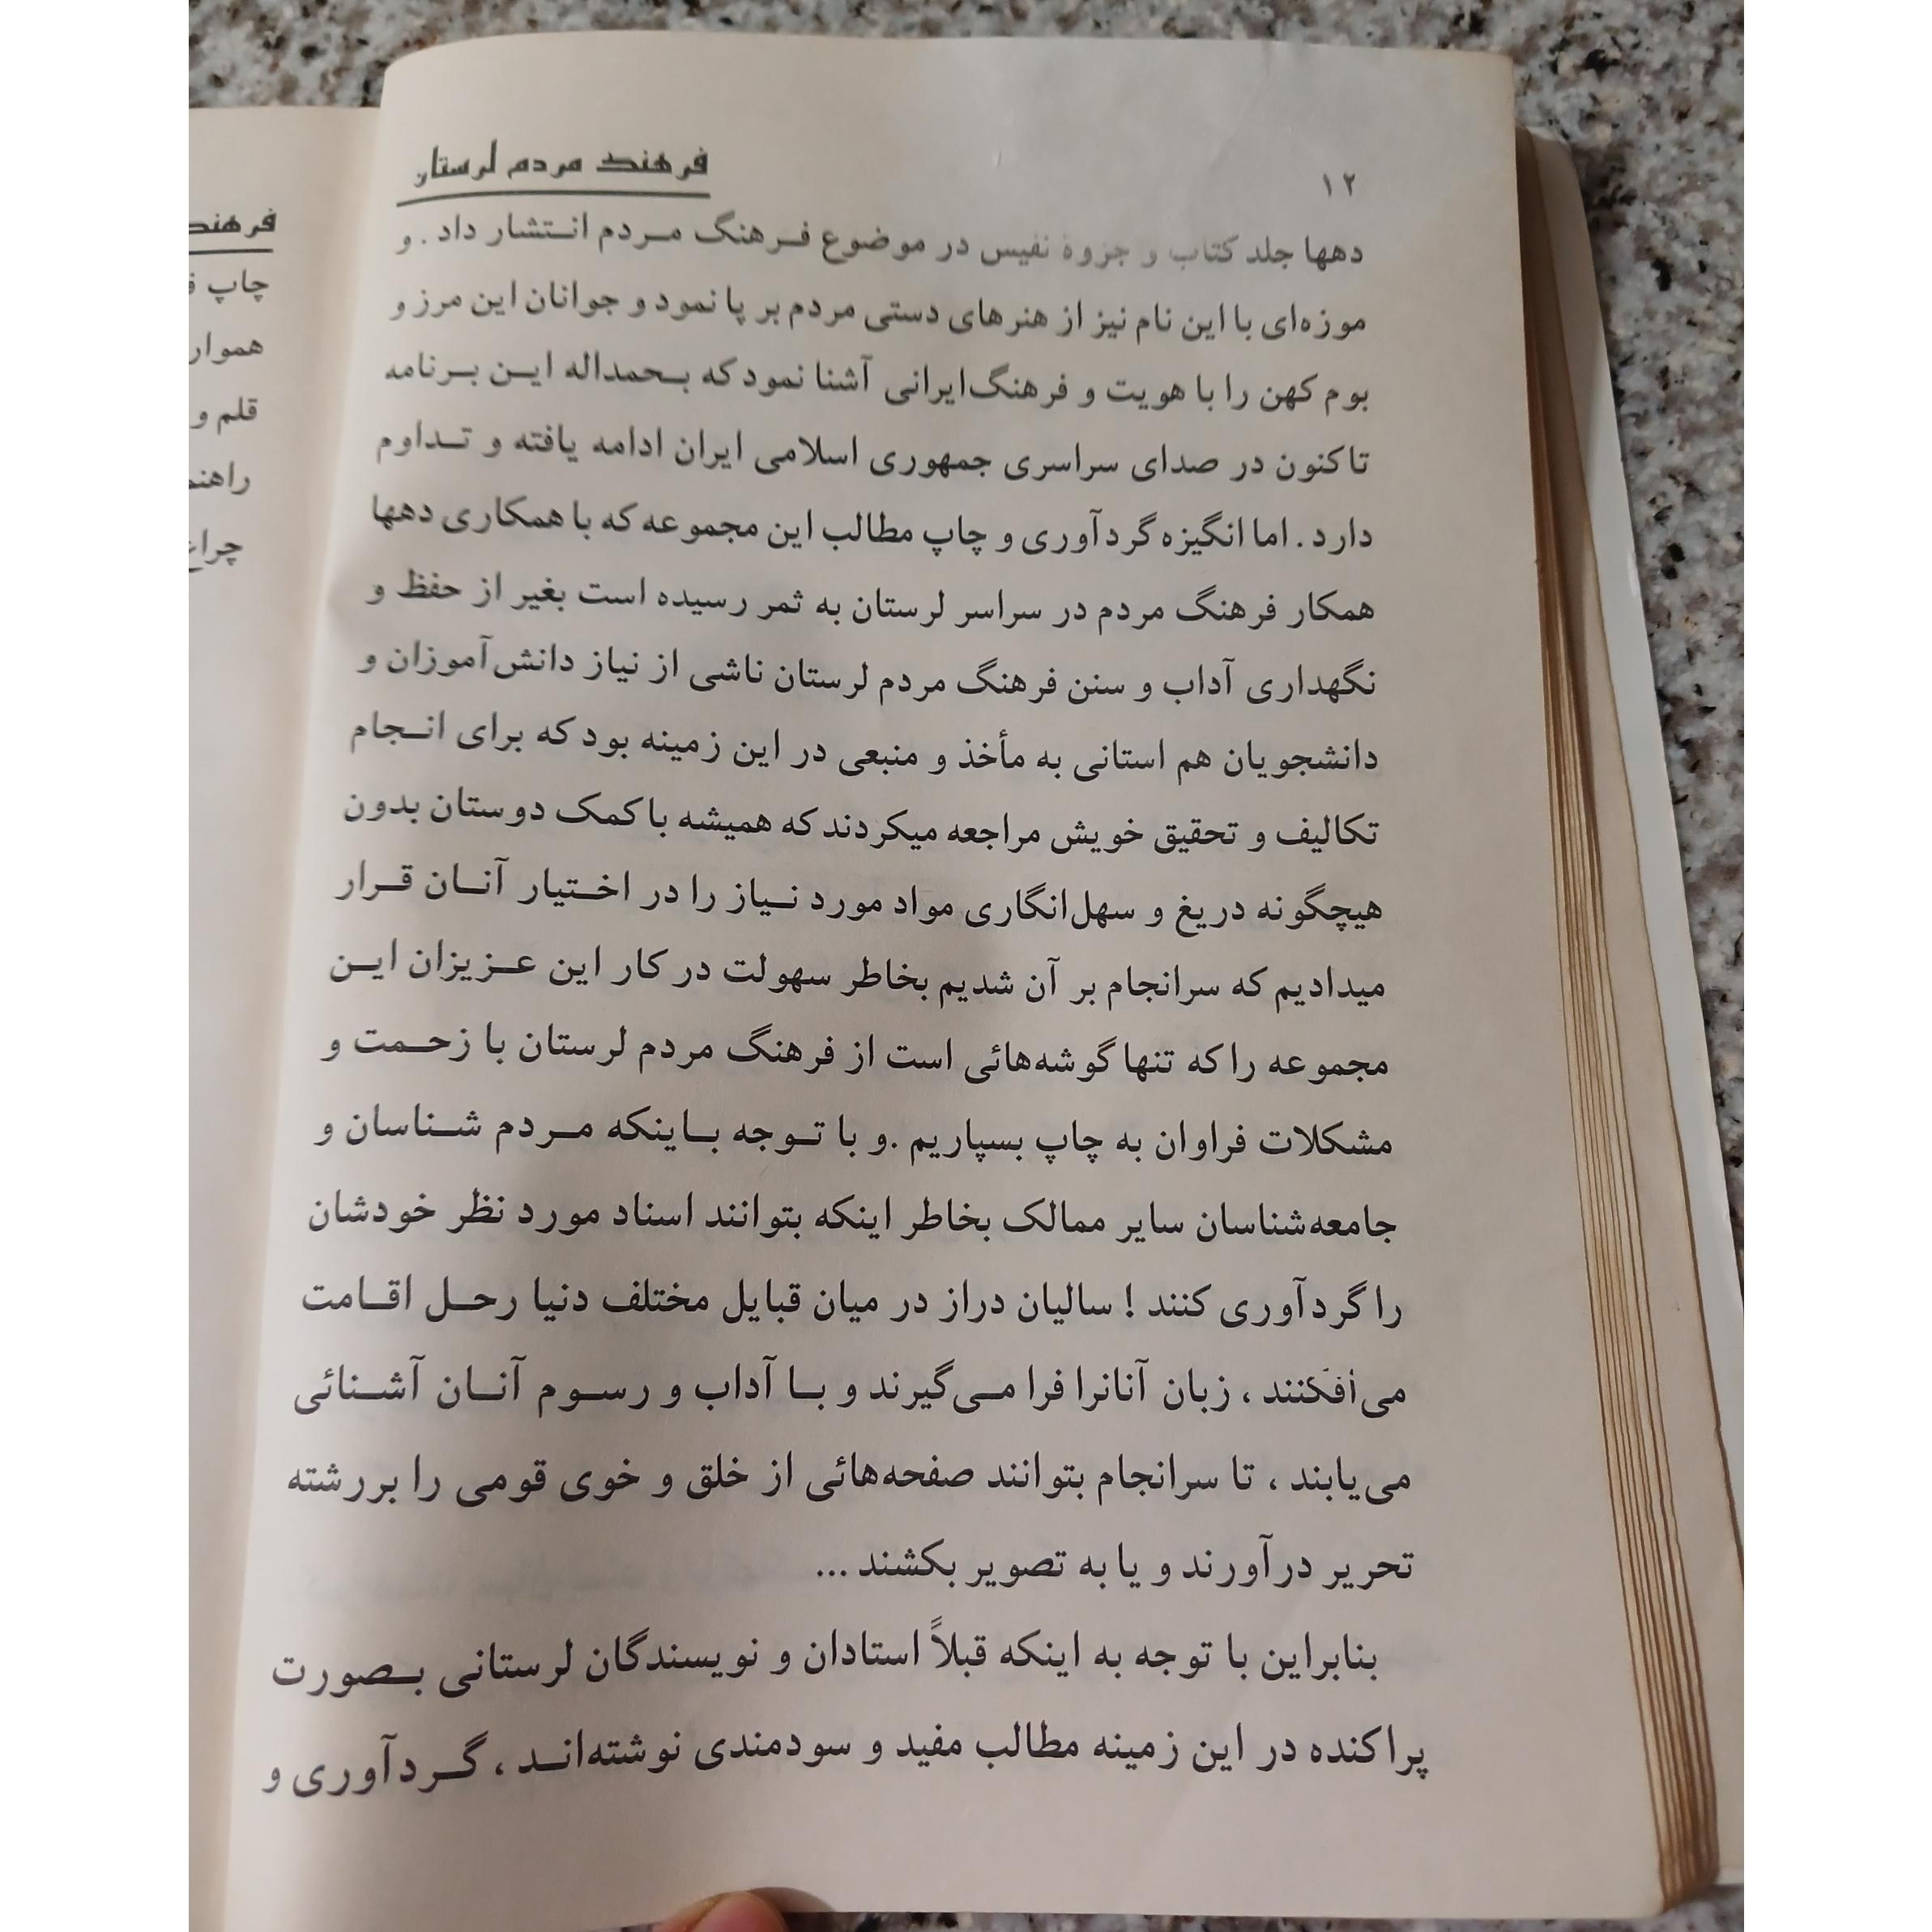 ۱۲
فرهنگ مردم لرستان
دهها جلد کتاب و جزوهٔ نفیس در موضوع فرهنگ مردم انتشار داد . و
موزه‌ای با این نام نیز از هنرهای دستی مردم بر پا نمود و جوانان این مرز و
بوم کهن را با هویت و فرهنگ‌ایرانی آشنا نمود که بحمداله این برنامه
تاکنون در صدای سراسری جمهوری اسلامی ایران ادامه یافته و تداوم
دارد . اما انگیزه گردآوری و چاپ مطالب این مجموعه که با همکاری دهها
همکار فرهنگ مردم در سراسر لرستان به ثمر رسیده است بغیر از حفظ و
نگهداری آداب و سنن فرهنگ مردم لرستان ناشی از نیاز دانش‌آموزان و
دانشجویان هم استانی به مأخذ و منبعی در این زمینه بود که برای انجام
تکالیف و تحقیق خویش مراجعه میکردند که همیشه با کمک دوستان بدون
هیچگونه دریغ و سهل‌انگاری مواد مورد نیاز را در اختیار آنان قرار
میدادیم که سرانجام بر آن شدیم بخاطر سهولت در کار این عزیزان این
مجموعه را که تنها گوشه‌هائی است از فرهنگ مردم لرستان با زحمت و
مشکلات فراوان به چاپ بسپاریم .و با توجه باینکه مردم شناسان و
جامعه‌شناسان سایر ممالک بخاطر اینکه بتوانند اسناد مورد نظر خودشان
را گردآوری کنند ! سالیان دراز در میان قبایل مختلف دنیا رحل اقامت
می‌افکنند ، زبان آنانرا فرا می‌گیرند و با آداب و رسوم آنان آشنائی
می‌یابند ، تا سرانجام بتوانند صفحه‌هائی از خلق و خوی قومی را بررشته
تحریر درآورند و یا به تصویر بکشند ...
بنابراین با توجه به اینکه قبلاً استادان و نویسندگان لرستانی بصورت
پراکنده در این زمینه مطالب مفید و سودمندی نوشته‌اند ، گردآوری و
چاپ
قلم و